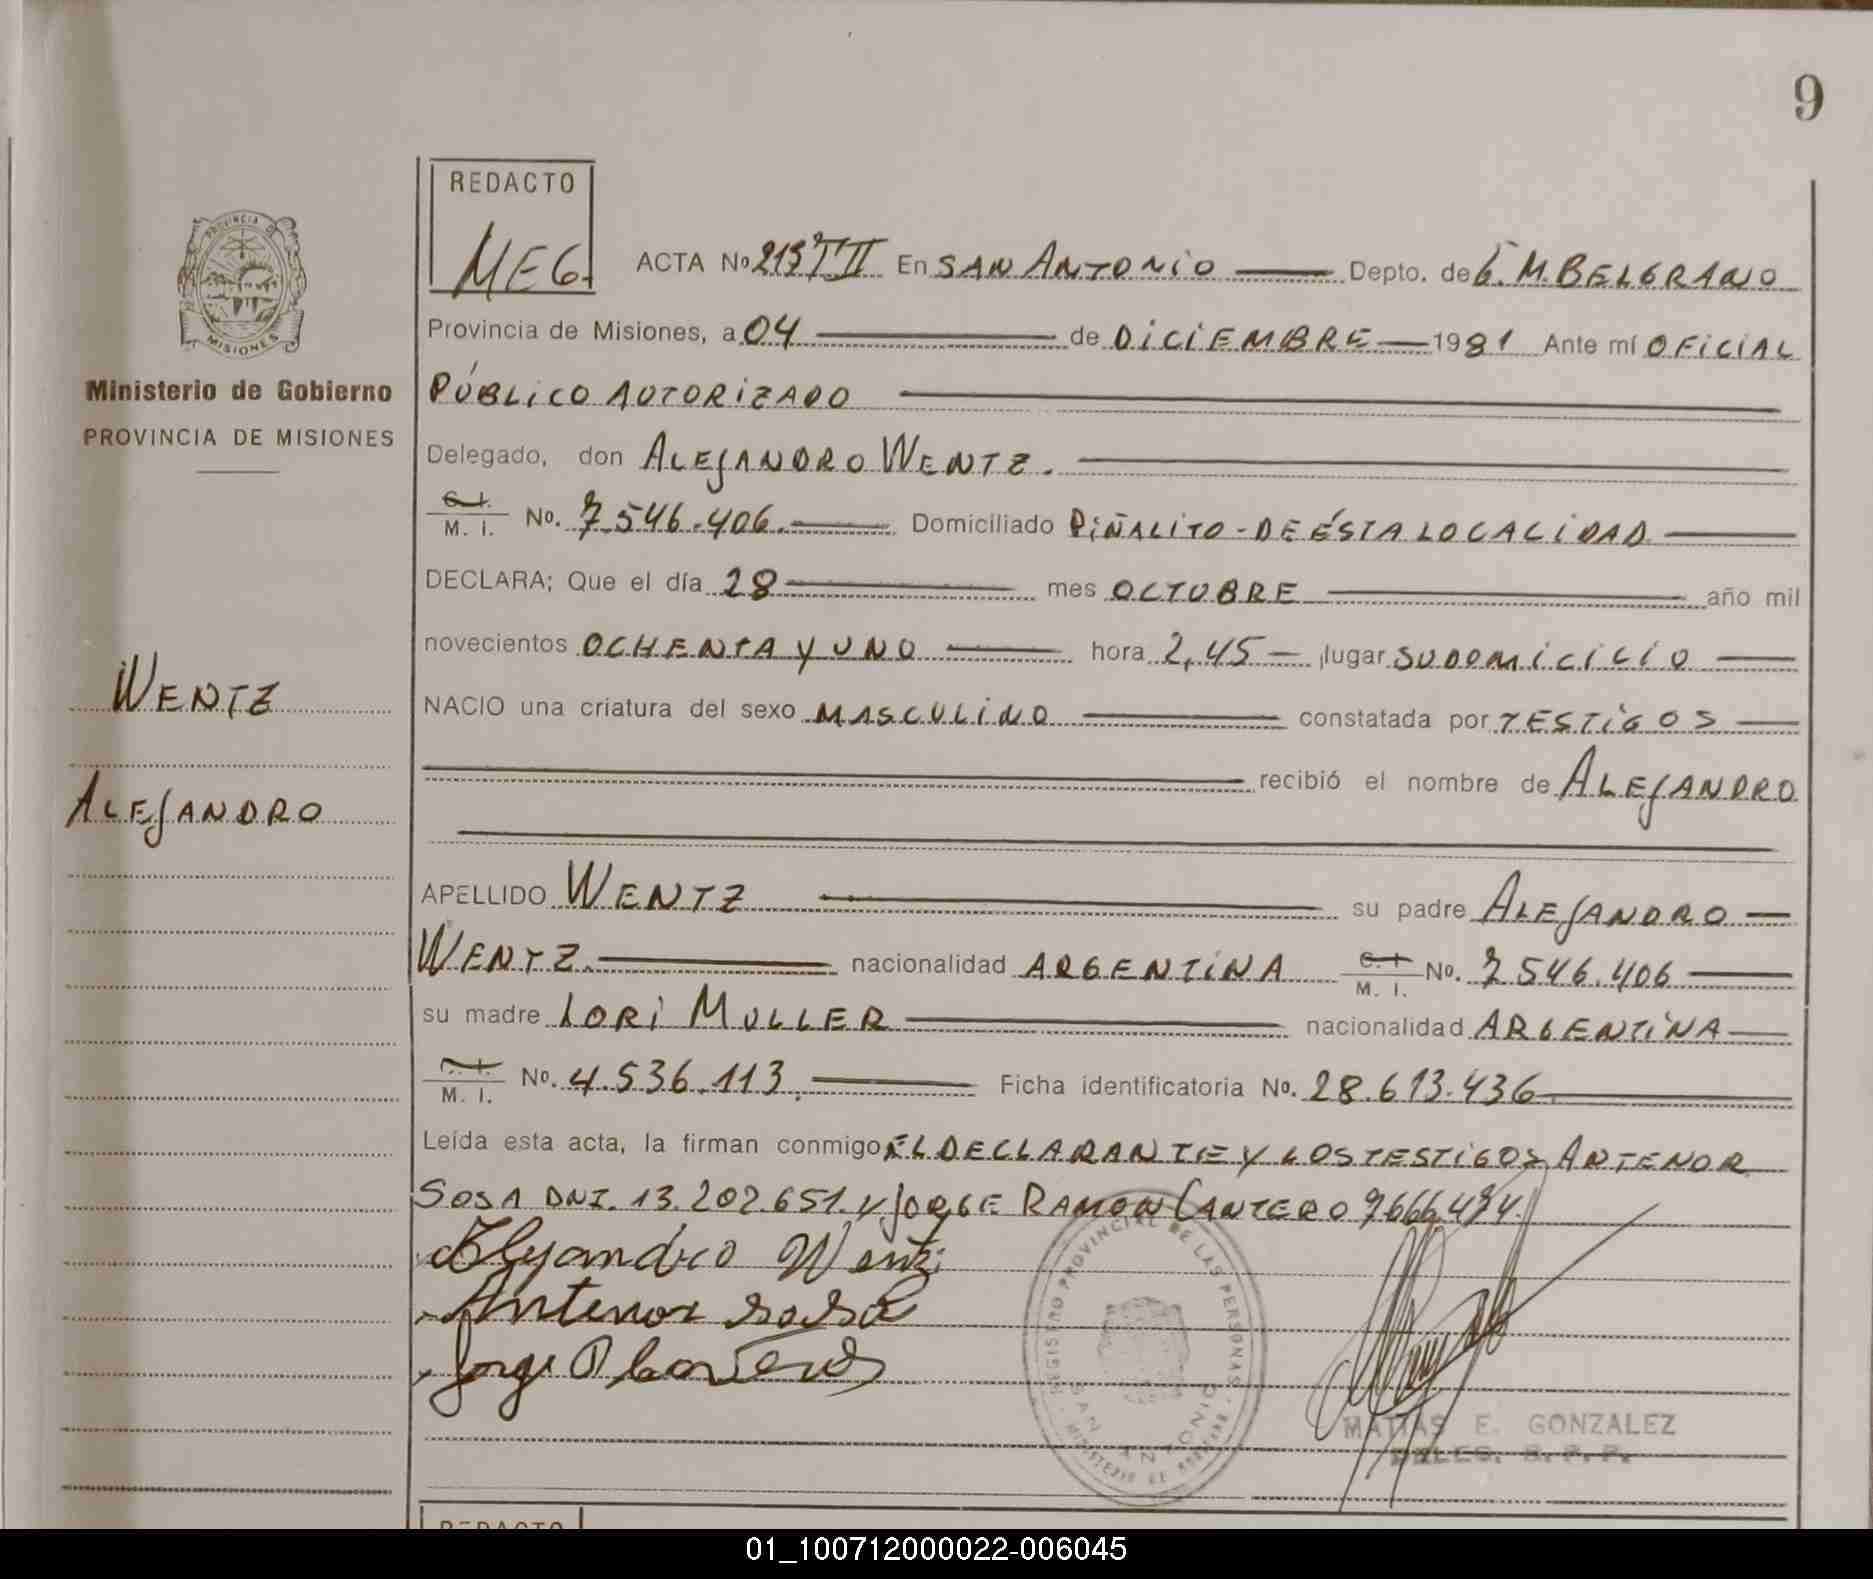 9
REDACTO
MEG.
ACTA No 213 TII En SAN ANTONIO Depto. de G. M. BELGRANO
PROVINCIA DE
MISIONES
Provincia de Misiones, a 04 de DICIEMBRE 1981 Ante mí OFICIAL
Ministerio de Gobierno
PÚBLICO AUTORIZADO
PROVINCIA DE MISIONES
Delegado, don ALEJANDRO WENTZ.
C. I.
M. I. No. 7.546.406. Domiciliado PIÑALITO - DE ÉSTA LOCALIDAD
DECLARA; Que el día 28 mes OCTUBRE año mil
novecientos OCHENTA Y UNO hora 2,45 lugar SU DOMICILIO
WENTZ
NACIO una criatura del sexo MASCULINO constatada por TESTIGOS
recibió el nombre de ALEJANDRO
ALEJANDRO
APELLIDO WENTZ su padre ALEJANDRO
WENTZ. nacionalidad ARGENTINA C. I. M. I. No. 7.546.406
su madre LORI MULLER nacionalidad ARGENTINA
C. I.
M. I. No. 4.536.113. Ficha identificatoria No. 28.613.436
Leída esta acta, la firman conmigo EL DECLARANTE Y LOS TESTIGOS ANTENOR
SOSA DNI. 13.202.651. Y JORGE RAMON CANTERO
Alejandro Wentz
Antenor sosa
Jorge R Canteros
REGISTRO PROVINCIAL DE LAS PERSONAS
SAN ANTONIO
MINISTERIO DE GOBIERNO
MATIAS E. GONZALEZ
DELEG. R. P. P.
REDACTO
01_100712000022-006045